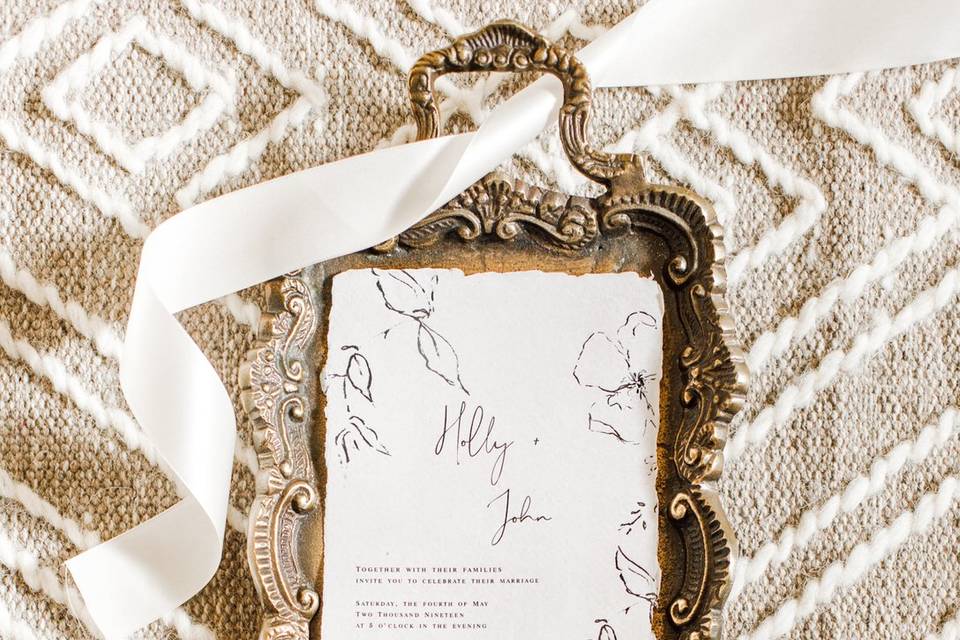 Holly +
John
TOGETHER WITH THEIR FAMILIES
INVITE YOU TO CELEBRATE THEIR MARRIAGE
SATURDAY, THE FOURTH OF MAY
TWO THOUSAND NINETEEN
AT 5 O'CLOCK IN THE EVENING